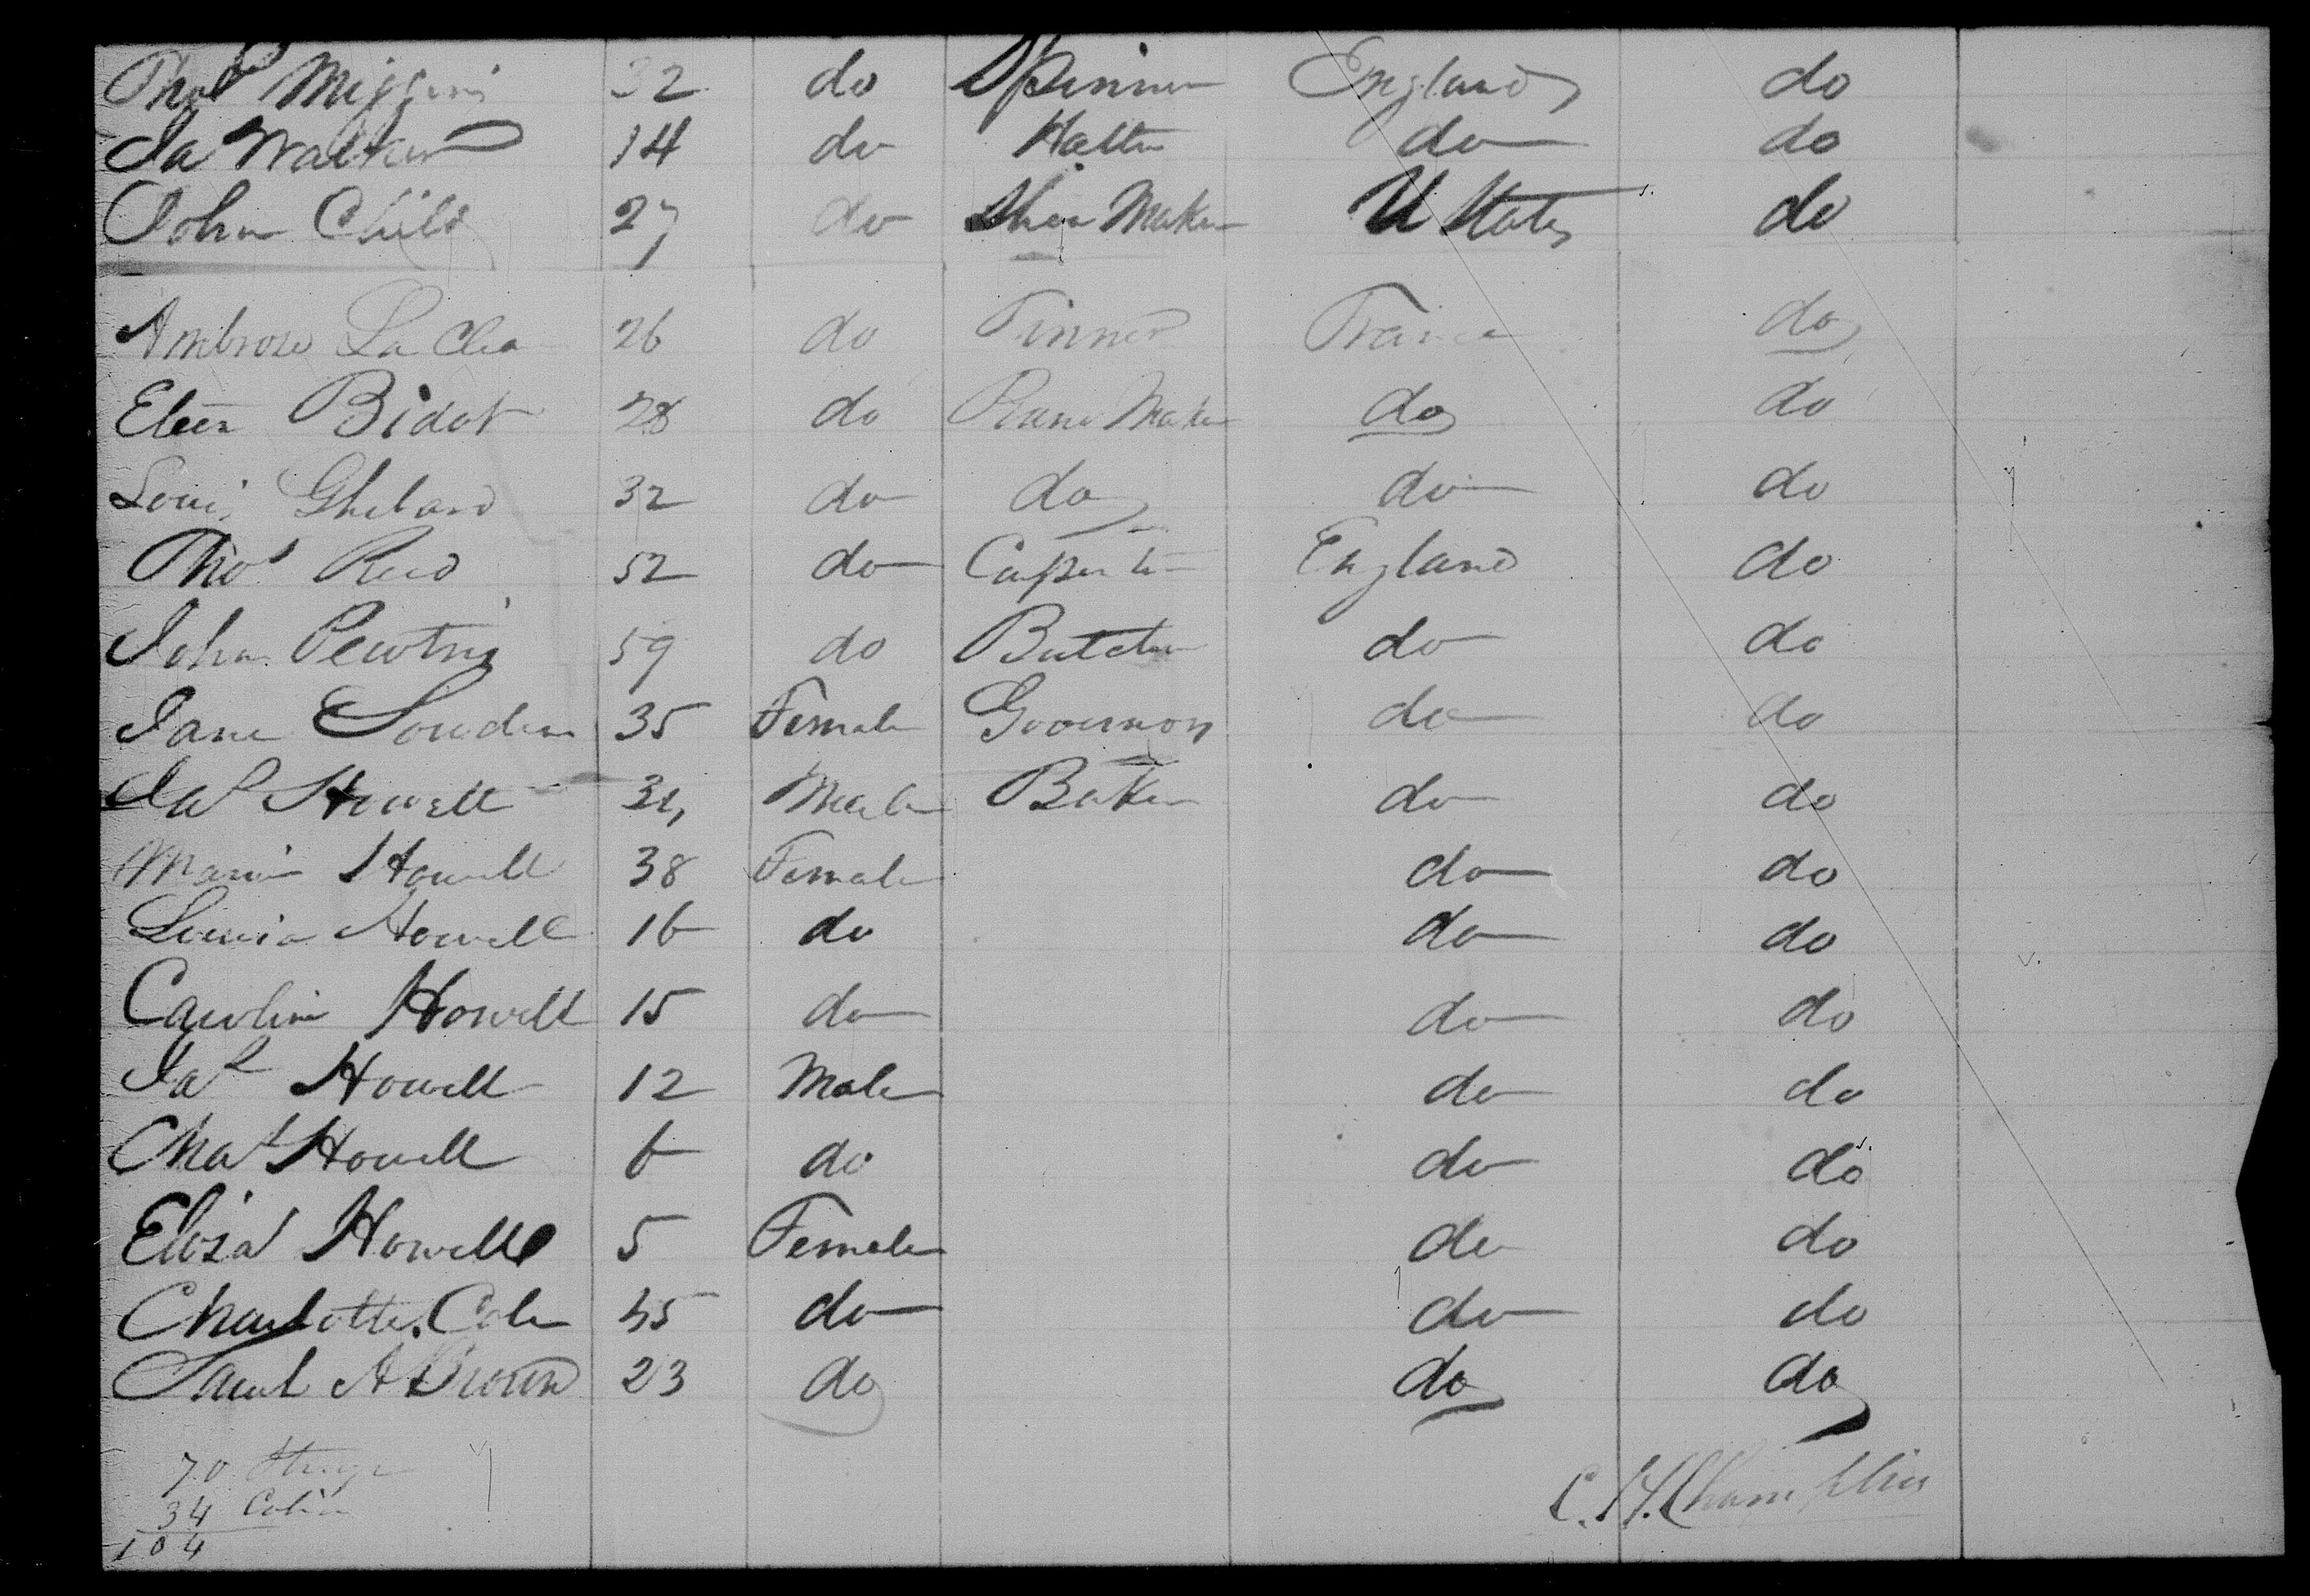 Thos Miggins 32 do Spinner England do
Jas Walker 14 do Hatter do do
John Child 27 do Shoe Maker U States do
Ambrose La Clea 26 do Tinner France do
Eleen Bidot 28 do Piano Maker do do
Louis 32 do do do do
Thos Reed 52 do Carpenter England do
John 59 do Butcher do do
Jane Louden 35 Female Governor do do
Jas Howell Male Baker do do
Maria Howell 38 Female do do
Louisa Howell 16 do do do
Carolin Howell 15 do do do
Jas Howell 12 Male do do
Chas Howell 6 do do do
Eliza Howell 5 Female do do
Charlotte Cole 45 do do do
Sarah A Brown 23 do do do
70 Steerage
34 Cabin
104
C. H. Champlin